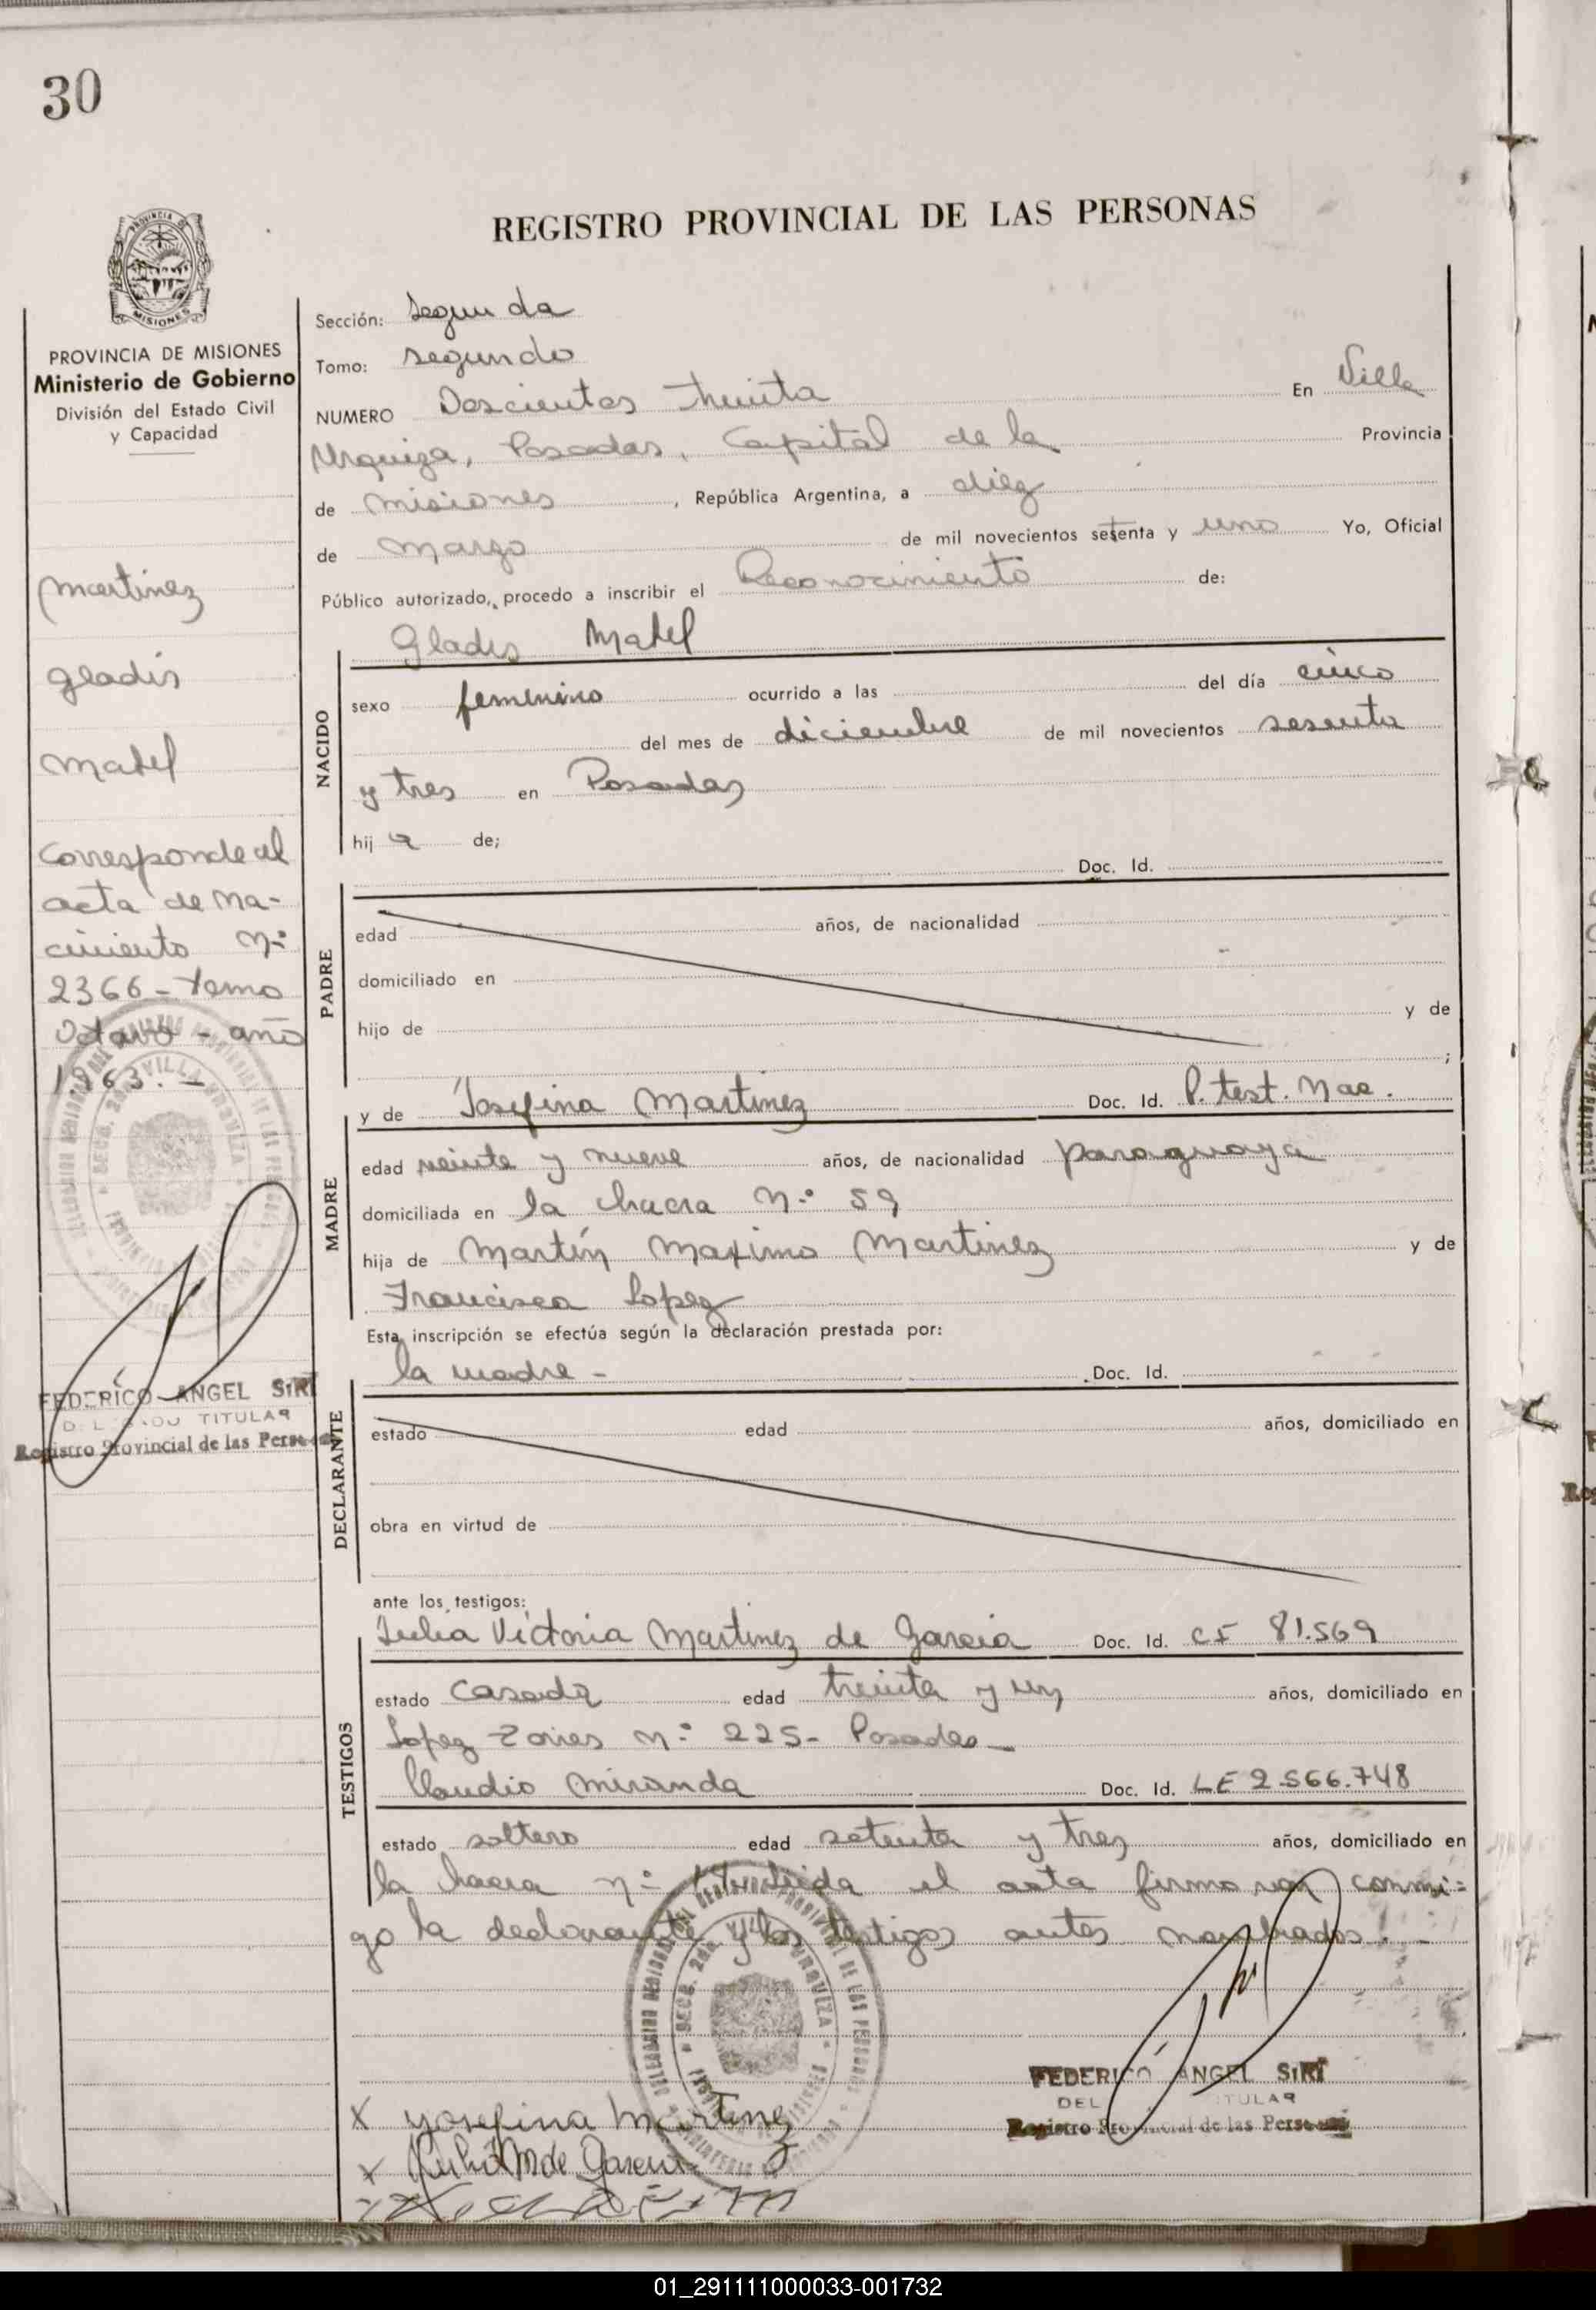 30
REGISTRO PROVINCIAL DE LAS PERSONAS
PROVINCIA DE MISIONES
Ministerio de Gobierno
División del Estado Civil
y Capacidad
martinez
gladis
mabel
Corresponde al
acta de na-
cimiento Nº
2366 - tomo
Octavo - año
1.963. -
FEDERICO ANGEL SIRI
TITULAR
Registro Provincial de las Personas
Sección: Segunda
Tomo: segundo
NUMERO Doscientos treinta En Villa
Urquiza, Posadas, Capital de la Provincia
de misiones, República Argentina, a diez
de marzo de mil novecientos setenta y uno Yo, Oficial
Público autorizado, procedo a inscribir el Reconocimiento de:
Gladis Mabel
NACIDO
sexo femenino ocurrido a las del día cinco
del mes de diciembre de mil novecientos sesenta
y tres en Posadas
hij a de;
Doc. Id.
PADRE
edad años, de nacionalidad
domiciliado en
hijo de y de
;
y de Josefina Martinez Doc. Id. P. test. Nac.
MADRE
edad veinte y nueve años, de nacionalidad paraguaya
domiciliada en la chacra Nº 59
hija de Martín Maximo Martinez y de
Francisca Lopez
Esta inscripción se efectúa según la declaración prestada por:
la madre - Doc. Id.
DECLARANTE
estado edad años, domiciliado en
obra en virtud de
ante los testigos:
Julia Victoria Martinez de Garcia Doc. Id. CI 81.569
TESTIGOS
estado Casada edad treinta y un años, domiciliado en
Lopez Torres Nº 225- Posadas -
Claudio Miranda Doc. Id. LE 2.566.748
estado soltero edad setenta y tres años, domiciliado en
la chacra Nº Leida el acta firmaron conmi=
go la declarante y los testigos antes nombrados! -
FEDERICO ANGEL SIRI
DEL TITULAR
Registro Provincial de las Personas
x yosefina Martinez
x Julia M de Garcia
01_291111000033-001732